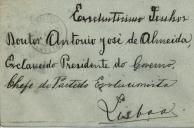 Excelentissimo Senhor
Doutor Antonio José de Almeida,
Esclarecido Presidente do Governo,
Chefe do Partido Evolucionista
Lisboa